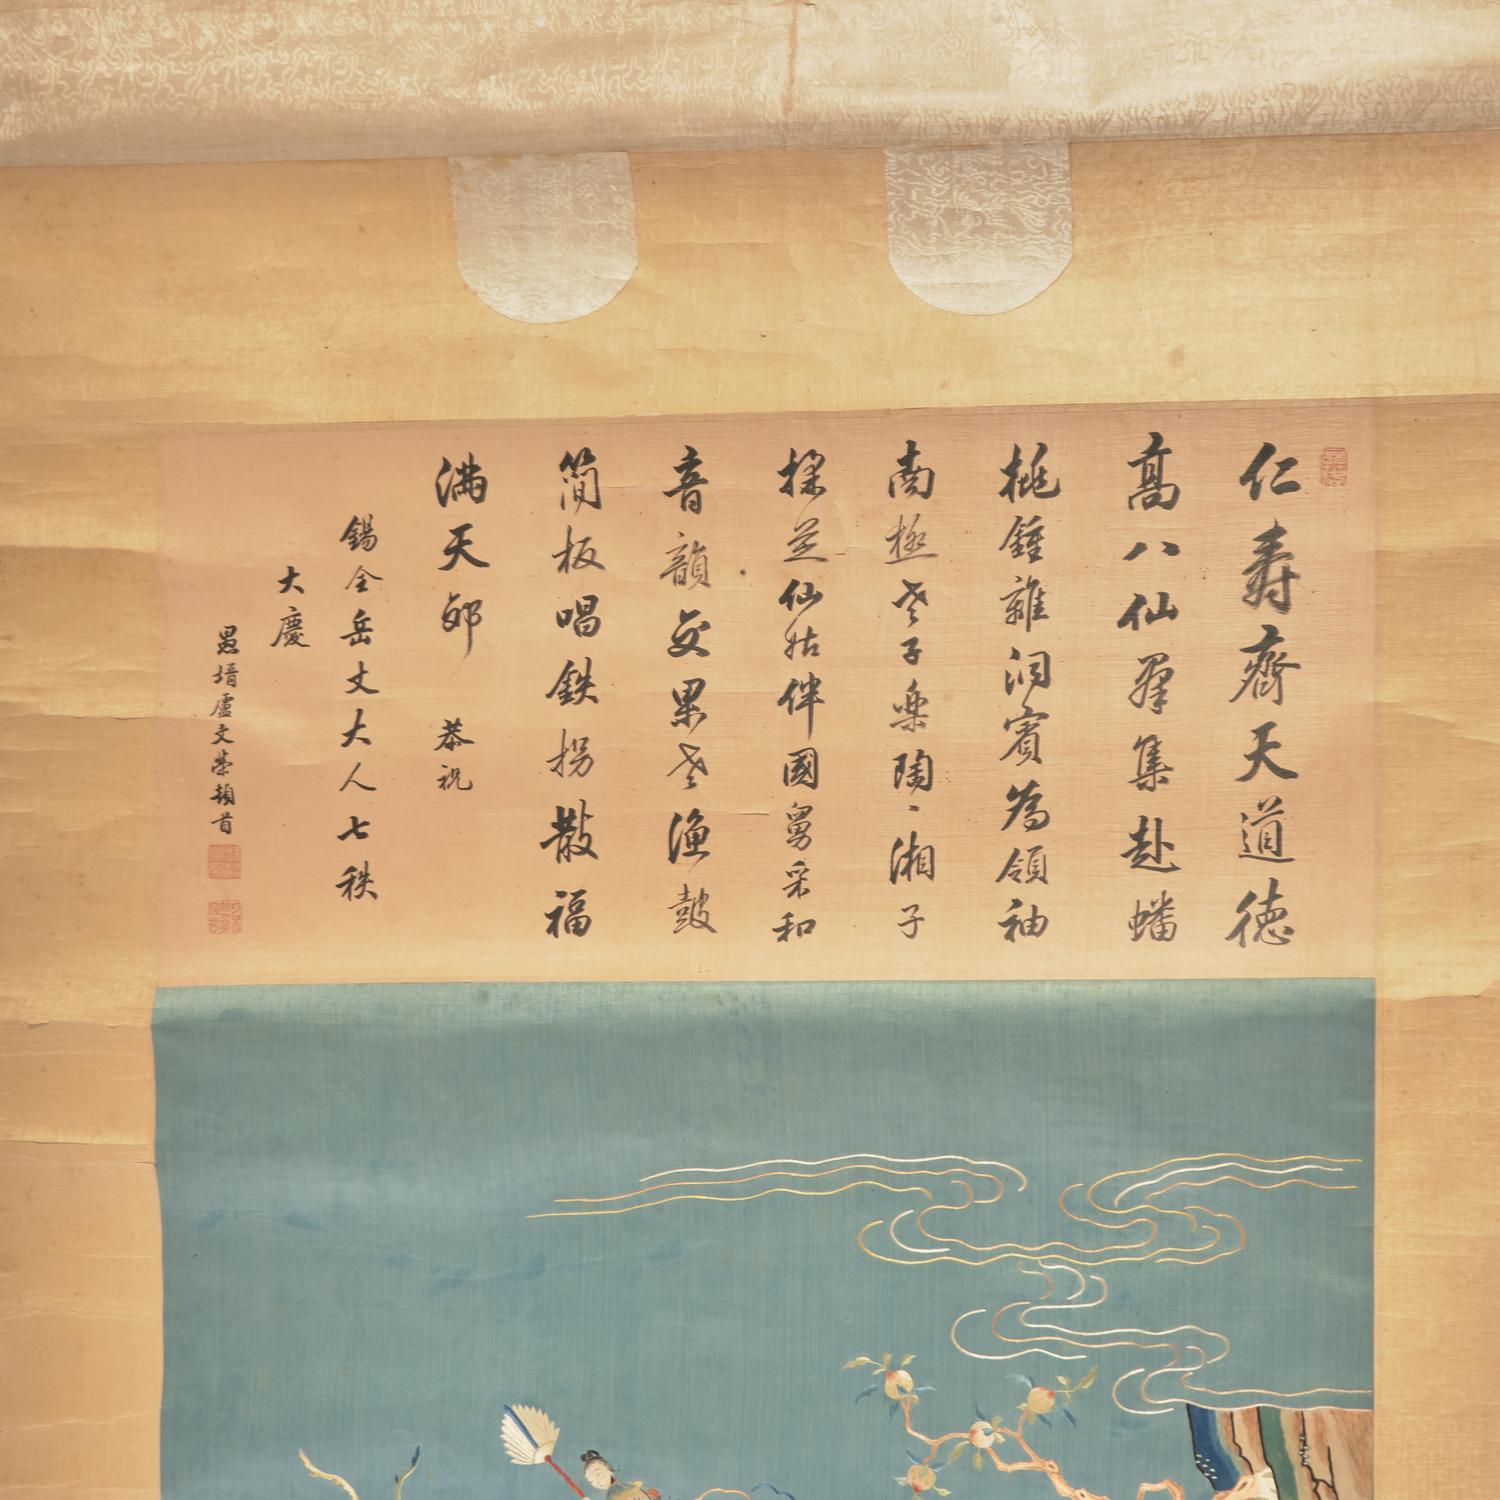 仁壽齊天道德
高八仙群集赴蟠
桃鍾離洞賓為領袖
南極老子樂陶〻湘子
採芝仙姑伴國舅采和
音韻交果老漁鼓
簡板唱鉄拐散福
滿天邨 恭祝
錫全岳丈大人七秩
大慶
愚壻盧文榮頓首